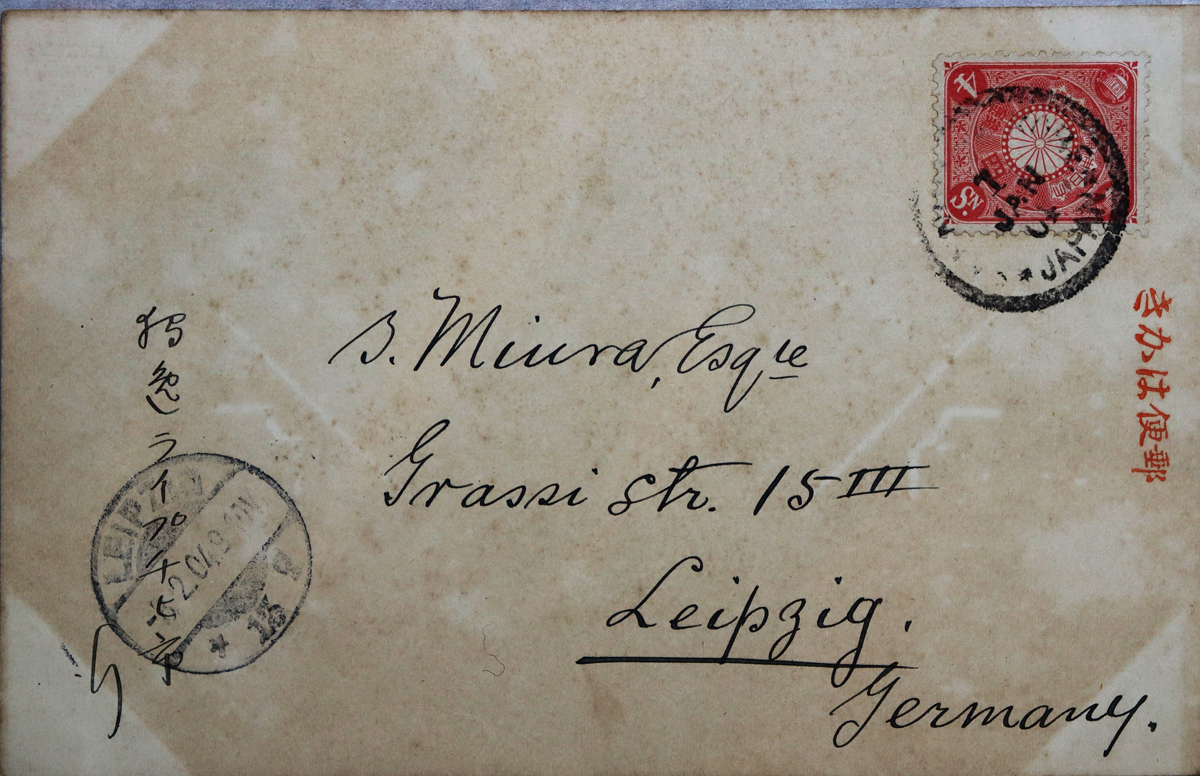 S. Miura, Esqre
Grassi str. 15 III
Leipzig.
Germany.
きかは便郵
独逸ライプチヒ市
LEIPZIG
2.04.9
* 13
4
Sn.
1
JAN
04
JAPAN